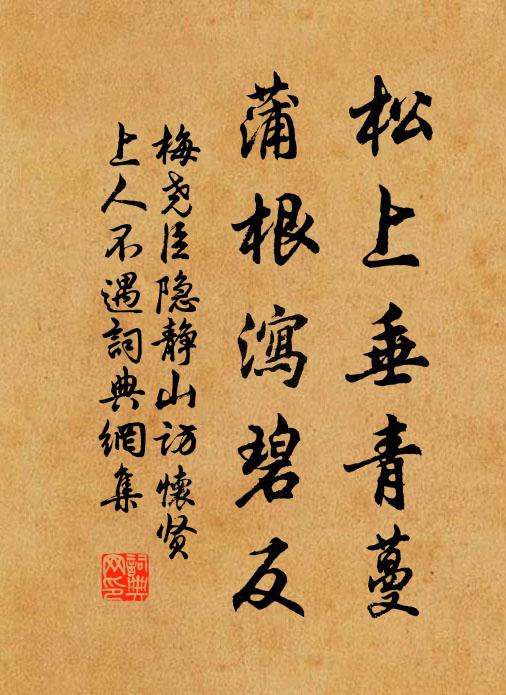 松上垂青蔓
蒲根瀉碧反
梅尧臣隐静山访懷贤
上人不遇詞典網集
詞典
网印